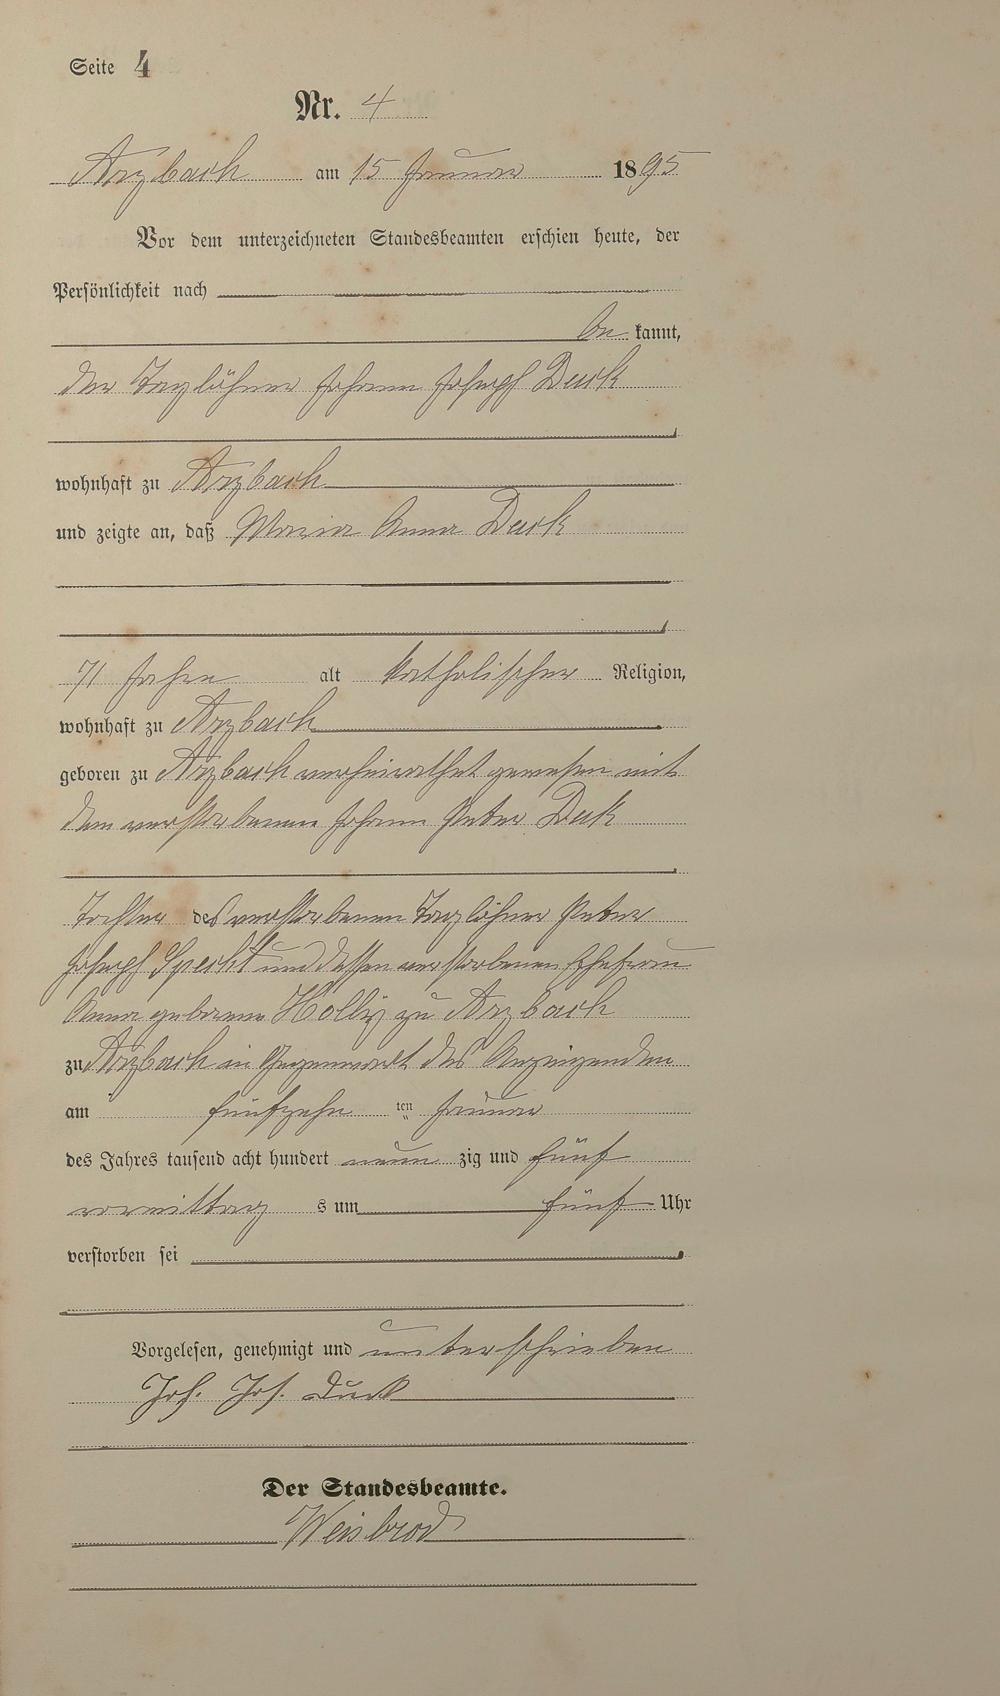 Seite 4
Nr. 4
Arzbach am 15 Januar 1895
Vor dem unterzeichneten Standesbeamten erschien heute, der
Persönlichkeit nach
be kannt,
der Taglöhner Johann Joseph Duck
wohnhaft zu Arzbach
und zeigte an, daß Maria Anna Duck
71 Jahre alt katholischer Religion,
wohnhaft zu Arzbach
geboren zu Arzbach verheirathet gewesen mit
dem verstorbenen Johann Peter Duck
Tochter des verstorbenen Taglöhner Peter
Joseph Specht und dessen verstorbenen Ehefrau
Anna geborene Holly zu Arzbach
zu Arzbach in Gegenwart des Anzeigenden
am fünfzehn ten Januar
des Jahres tausend acht hundert neun zig und fünf
vormittag s um fünf Uhr
verstorben sei
Vorgelesen, genehmigt und unterschrieben
Joh. Jos. Duck
Der Standesbeamte.
Weisbrod